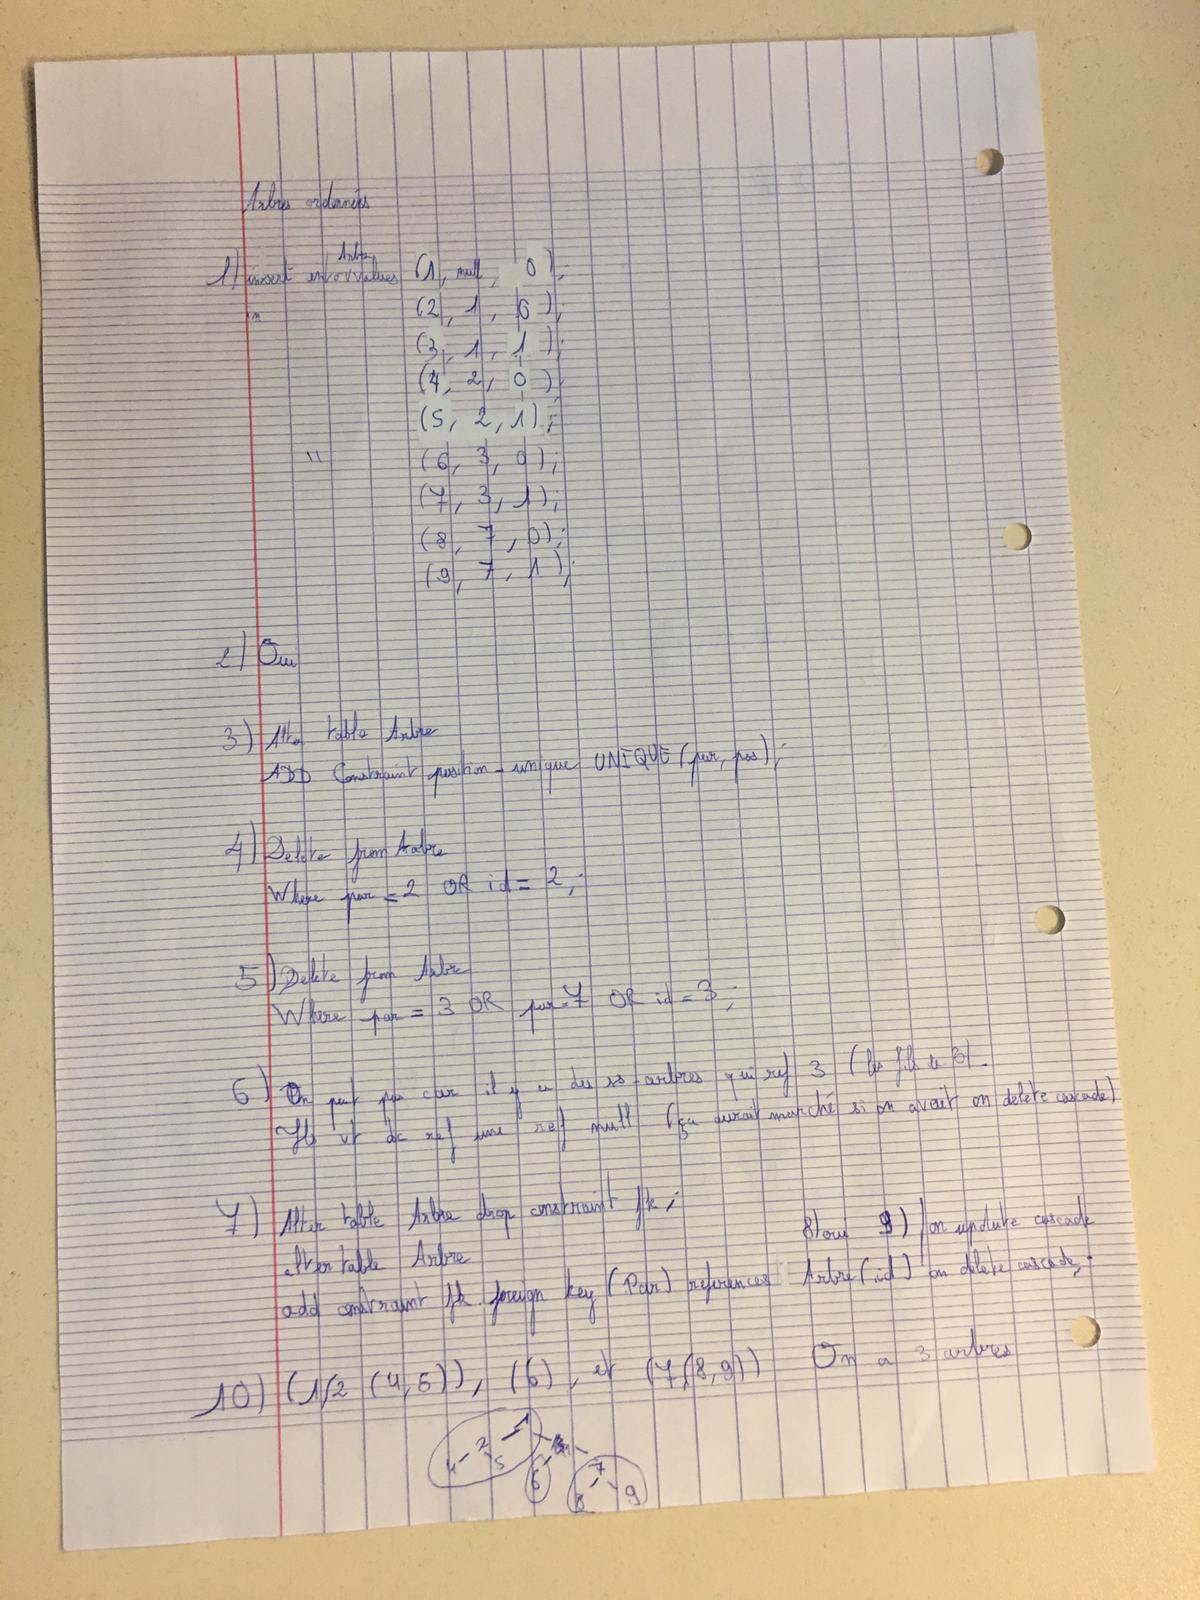 Arbres ordonnés
1) insert into Arbre values (1, null, 0);
" (2, 1, 0);
(3, 1, 1);
(4, 2, 0),
(5, 2, 1);
" (6, 3, 0);
(7, 3, 1);
(8, 7, 0);
(9, 7, 1);
2) Oui
3) Alter table Arbre
ADD Constraint position-unique UNIQUE (par, pos);
4) Delete from Arbre
Where par = 2 OR id = 2;
5) Delete from Arbre
Where par = 3 OR par=7 OR id = 3;
6) On peut pas car il y a des ss-arbres qui ref 3 (les fils de 3).
Ils vt dc ref une ref null (ça aurait marché si on avait on delete cascade)
7) Alter table Arbre drop constraint fk;
8) oui 9) on update cascade
alter table Arbre
add constraint fk foreign key (Par) references Arbre(id) on delete cascade;
10) (1(2 (4,5)), (6), et (7(8,9)) On a 3 arbres
1
2
4 5
6
7
8 9